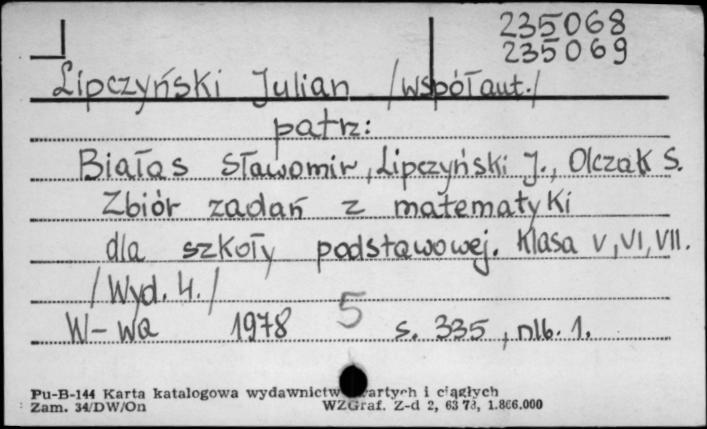 235068
235069
Lipczyński Julian /współaut./
patrz:
Białas Sławomir, Lipczyński J., Olczak S.
Zbiór zadań z matematyki
dla szkoły podstawowej. Klasa V, VI, VII.
/Wyd. 4./
5
W-wa 1978 s. 335, nlb. 1.
Pu-B-144 Karta katalogowa wydawnictw i ciągłych
Zam. 34/DW/On WZGraf. Z-d 2, 1.866.000